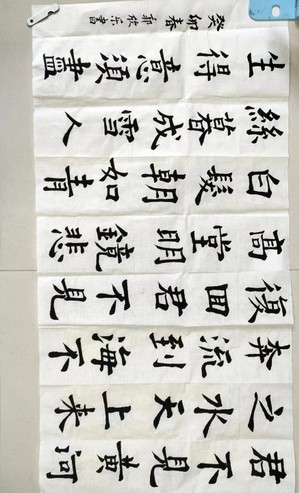 君不見黃河
之水天上來
奔流到海不
復回君不見
高堂明鏡悲
白髮朝如青
絲暮成雪人
生得意須盡
癸卯春 郭欣乐書